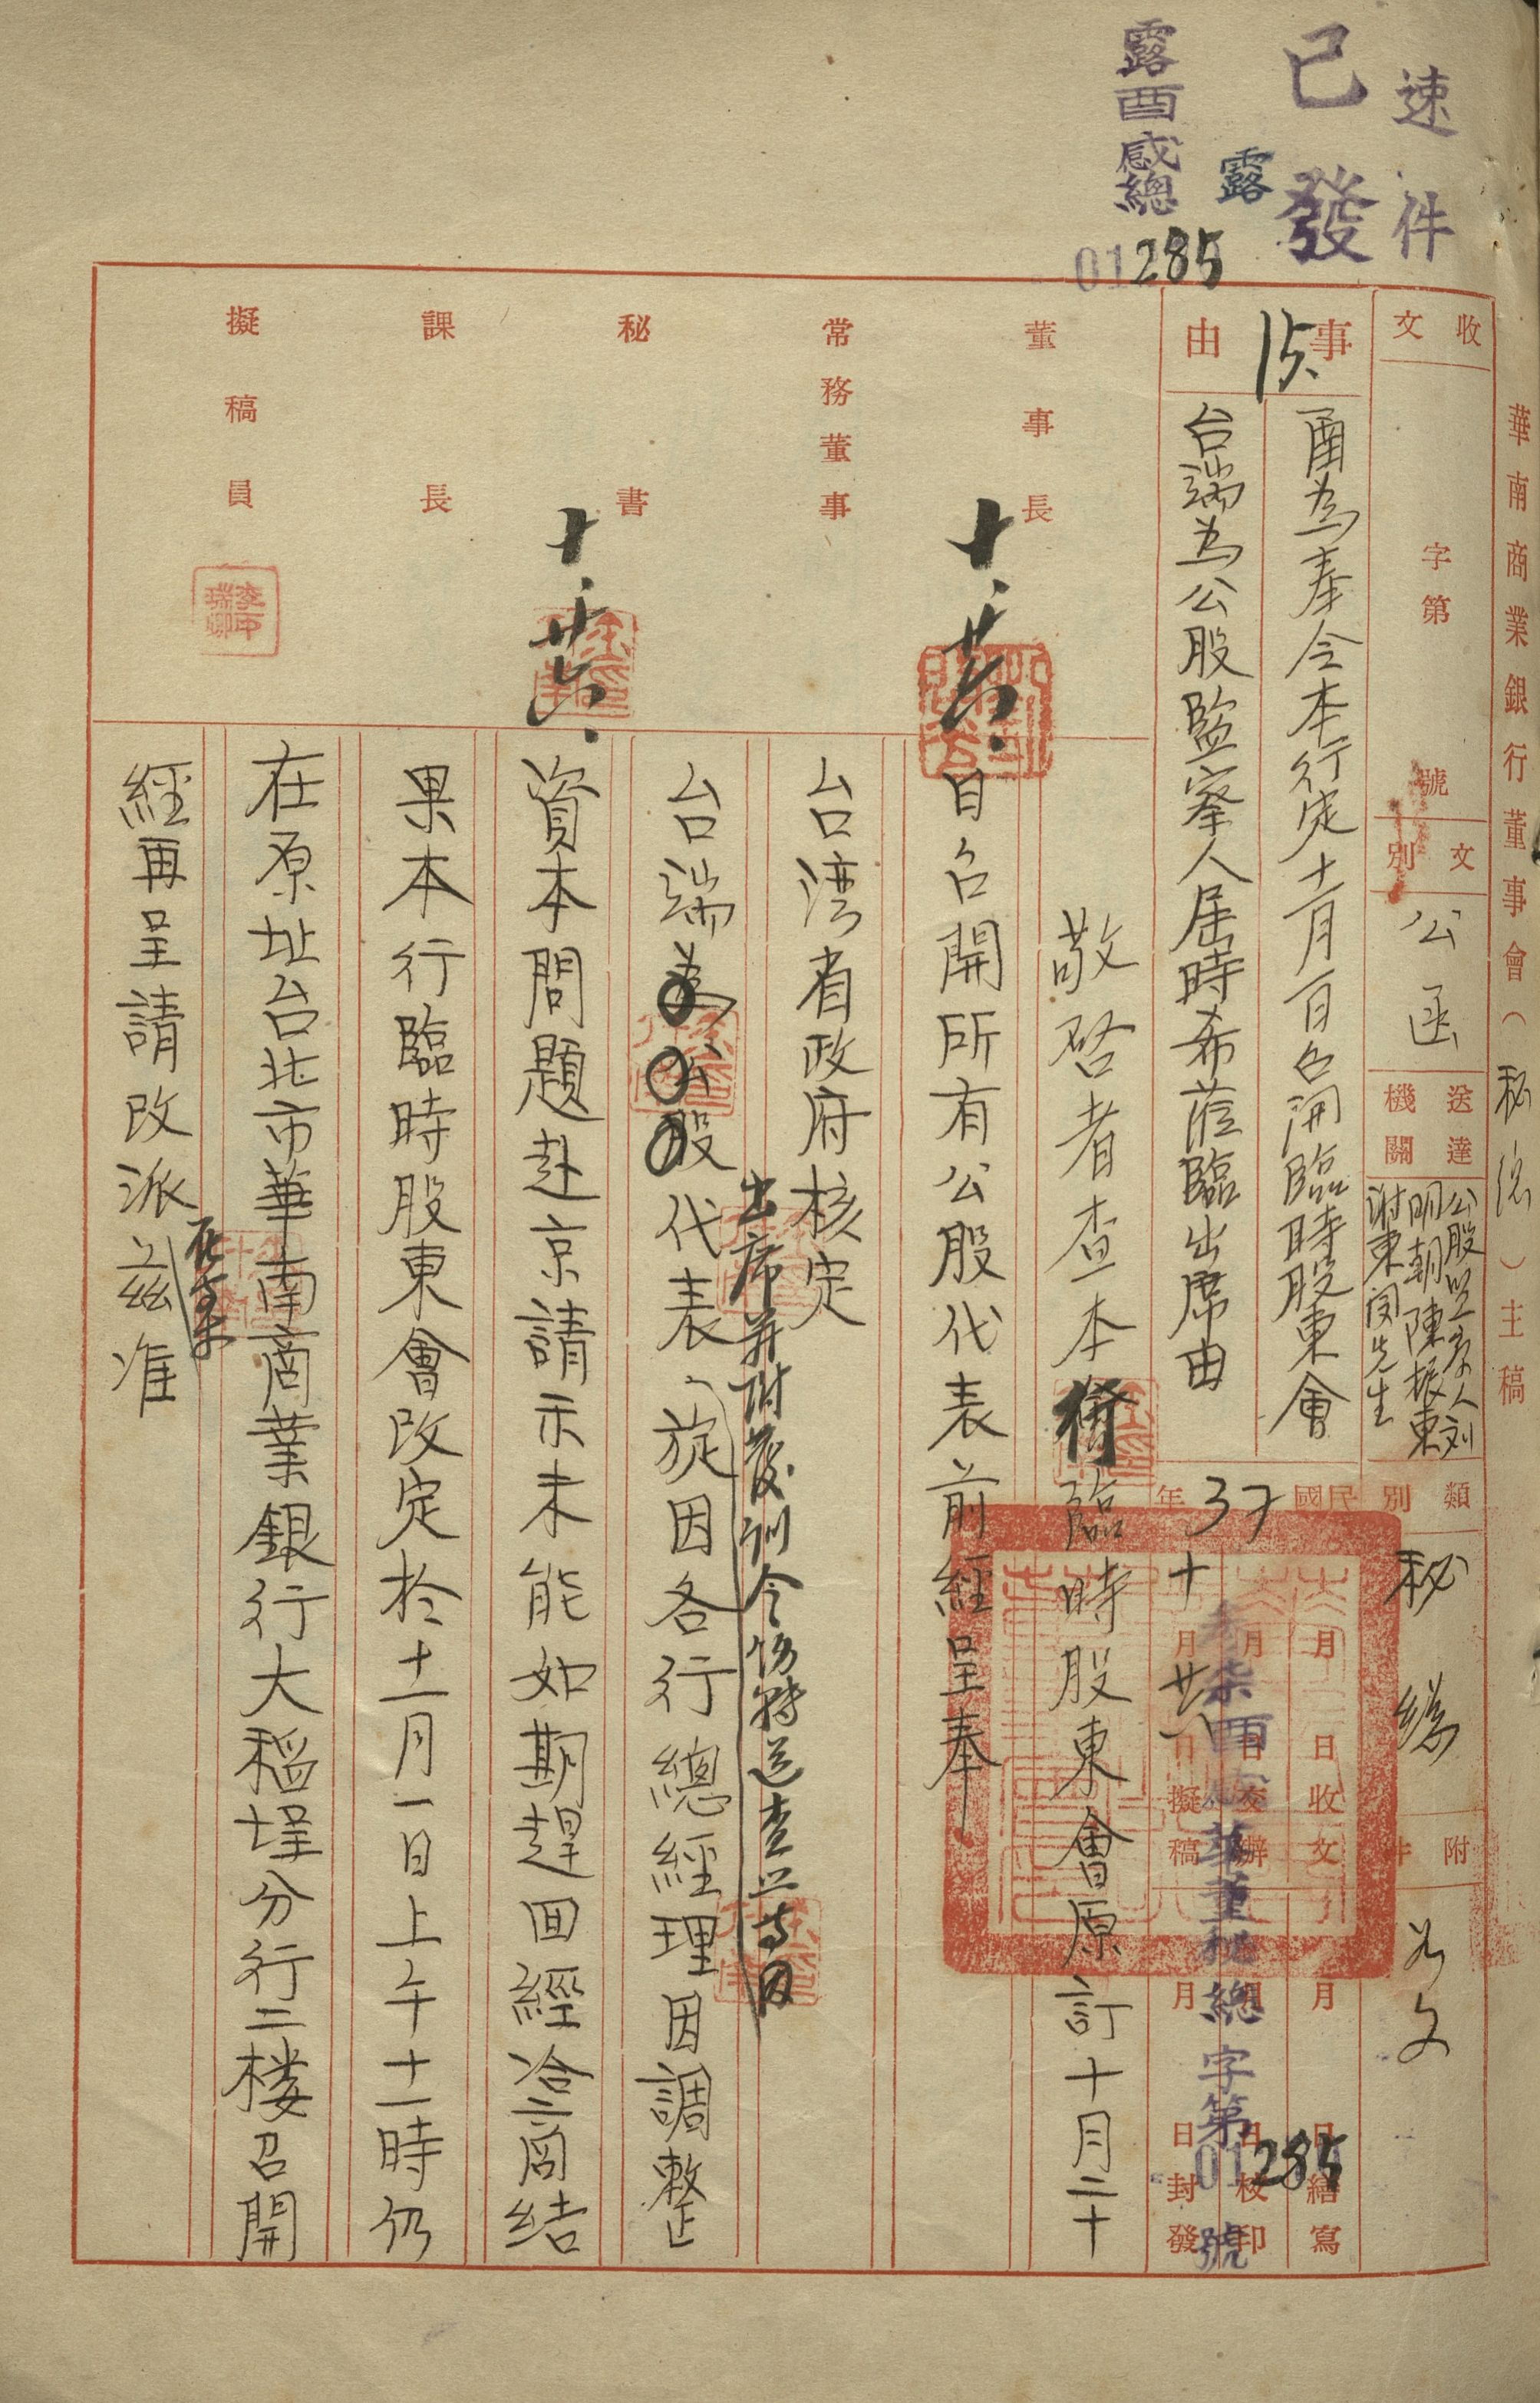 速件
已發
露
露酉感總
01285
華南商業銀行董事會（秘總）主稿
收文
字第
號
文別
公函
送達機關
公股監察人刘
明朝陳振東
謝東閔先生
類別
秘總
附件
如文
事由
15.
甬為奉令本行定十一月一日召開臨時股東會
台端為公股監察人屆時希蒞臨出席由
民國37年
月 日收文
月 日交辦
十月廿八日擬稿
月 日繕寫
月 日校印
月 日封發
叁柒酉感華董秘總字第01285號
董事長
十.廿六.
常務董事
秘書
十.廿六.
課長
擬稿員
敬啓者查本行臨時股東會原訂十月二十
日召開所有公股代表前經呈奉
台湾省政府核定
台端為公股代表
出席并附發訓令飭轉送查照等因
旋因各行總經理因調整
資本問題赴京請示未能如期趕回經洽商結
果本行臨時股東會改定於十一月一日上午十一時仍
在原址台北市華南商業銀行大稻埕分行二楼召開
經再呈請改派
在案
兹准